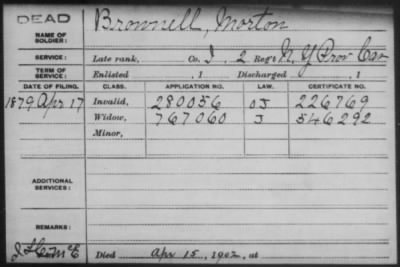 DEAD
NAME OF SOLDIER: Brownell, Morton
SERVICE: Late rank, Co. I, 2 Reg't N. Y. Prov Cav
TERM OF SERVICE: Enlisted , 1 Discharged , 1
DATE OF FILING. CLASS. APPLICATION NO. LAW. CERTIFICATE NO.
1879 Apr 17 Invalid, 280056 OJ 226769
Widow, 767060 J 546292
Minor,
ADDITIONAL SERVICES:
REMARKS:
Died Apr 15, 1902, at